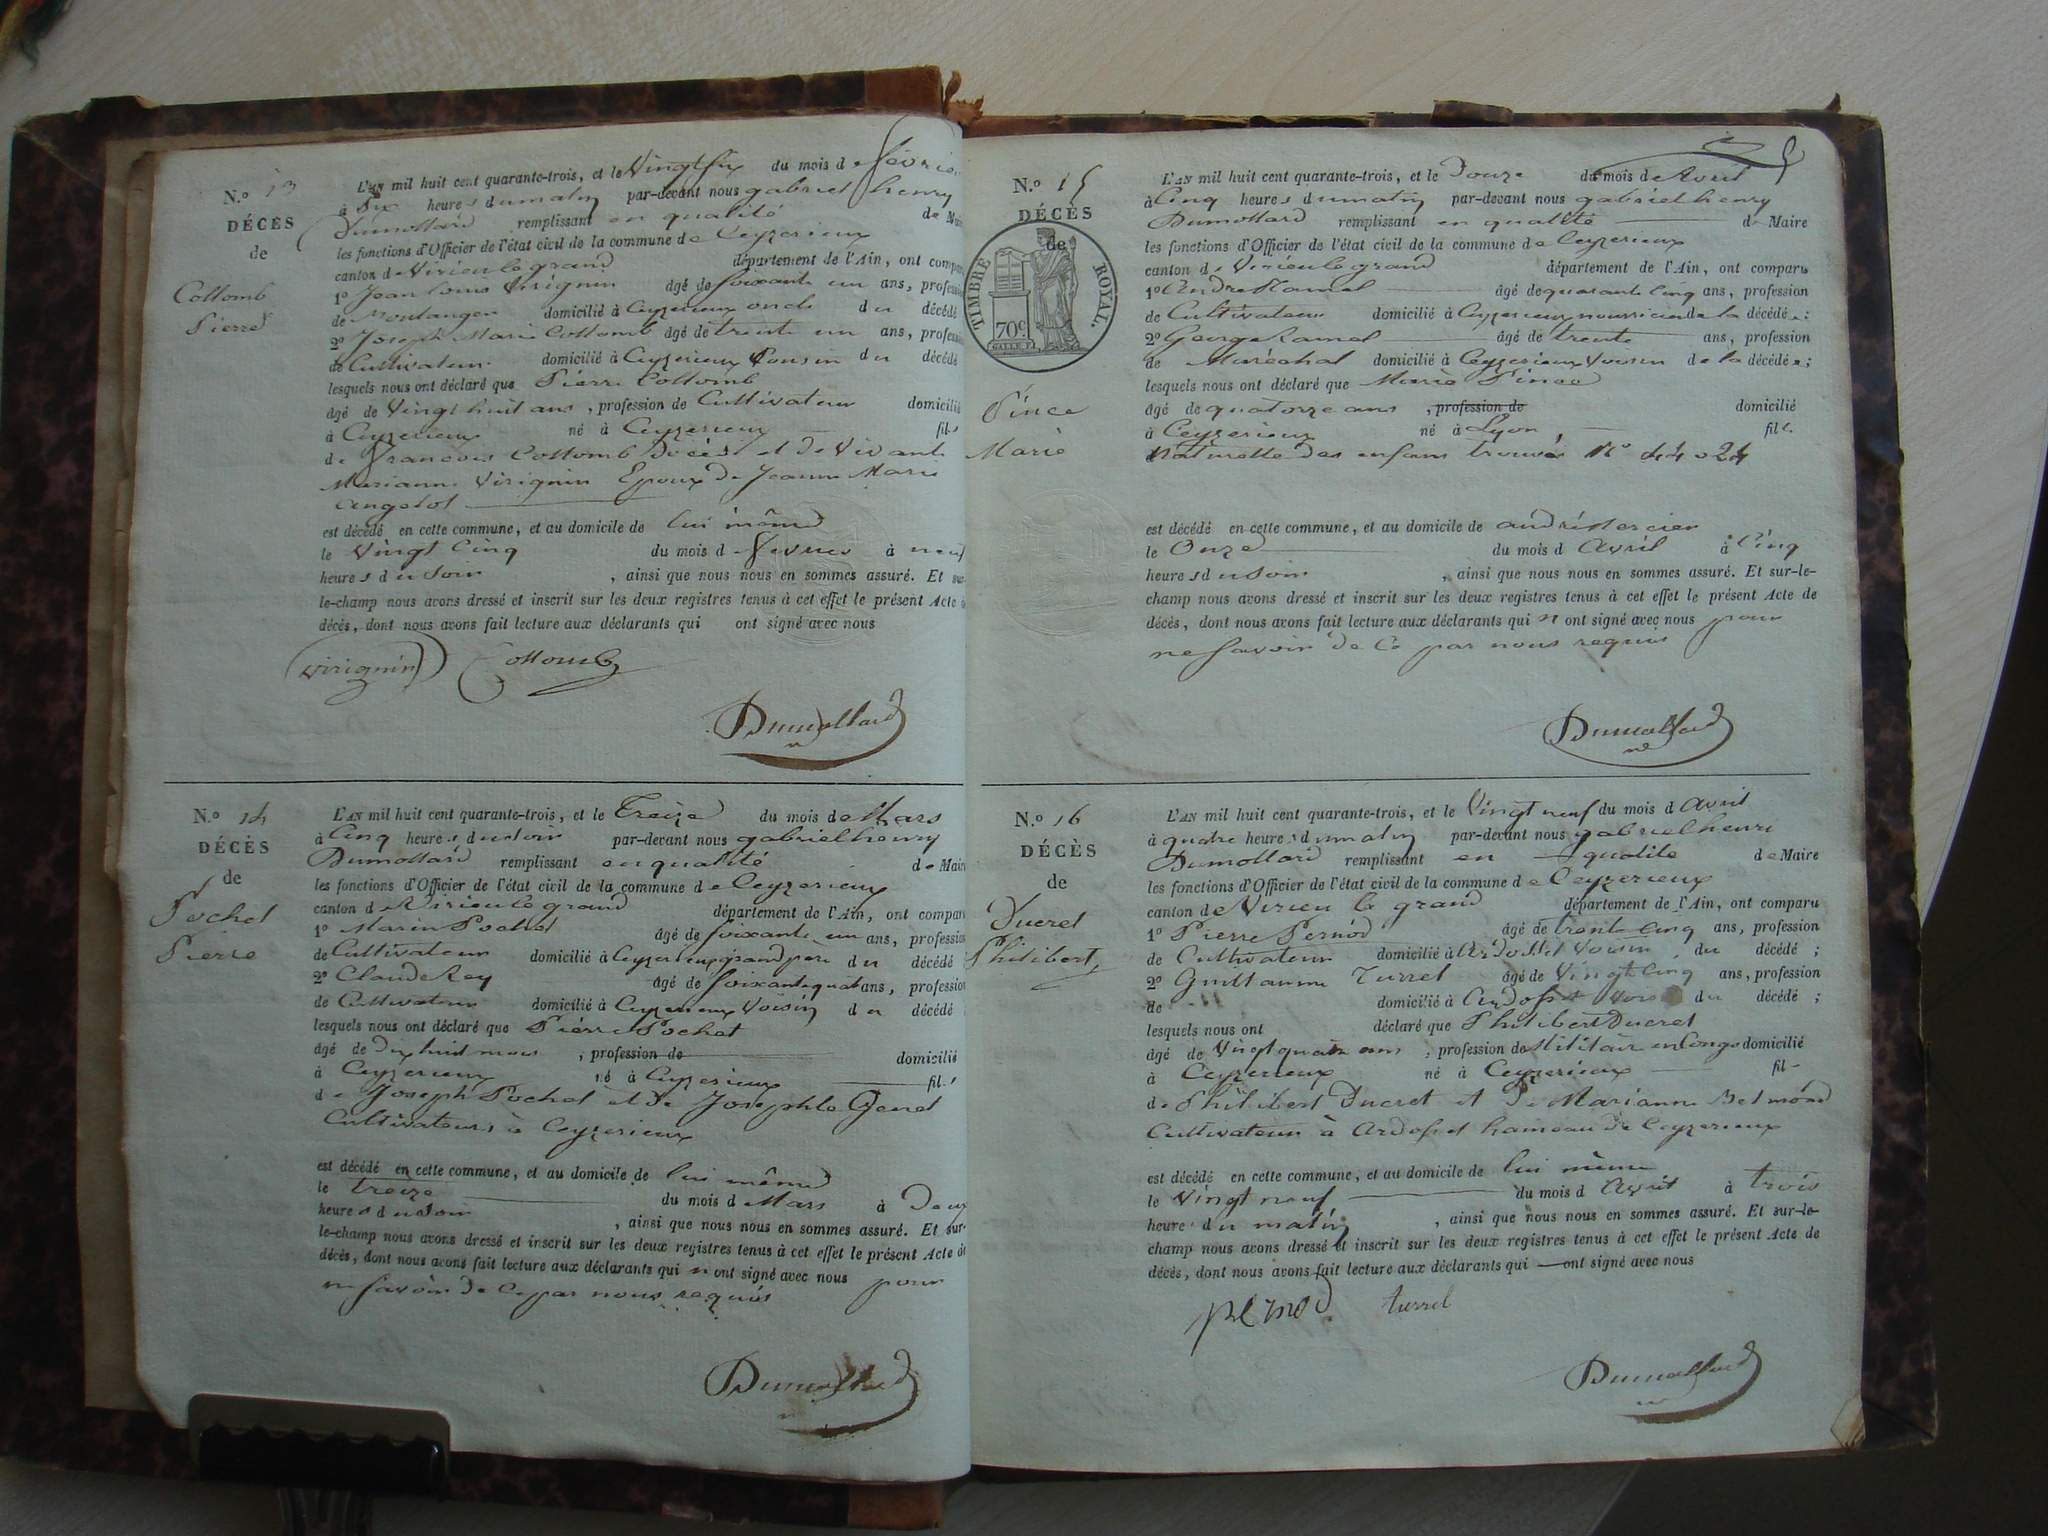 N.º 13
DÉCÈS
de
Collomb
Pierre
L'AN mil huit cent quarante-trois, et le Vingt six du mois de février
à Six heures du matin par-devant nous gabriel henry
Dumollard remplissant en qualité de Maire
les fonctions d'Officier de l'état civil de la commune de Ceyzerieux
canton de Virieu le grand département de l'Ain, ont comparu
1º Jean Louis Virignin âgé de soixante un ans, profession
de domicilié à Ceyzerieux oncle du décédé
2º Joseph Marie Collomb âgé de trente un ans, profession
de Cultivateur domicilié à Ceyzerieux Cousin du décédé
lesquels nous ont déclaré que Pierre Collomb
âgé de Vingt huit ans, profession de Cultivateur domicilié
à Ceyzerieux né à Ceyzerieux fils
de francois Collomb Décédé et de Vivante
Marianne Virignin Epoux de Jeanne Marie
Angelot
est décédé en cette commune, et au domicile de lui même
le Vingt Cinq du mois de fevrier à neuf
heures du Soir, ainsi que nous nous en sommes assuré. Et sur-
le-champ nous avons dressé et inscrit sur les deux registres tenus à cet effet le présent Acte de
décès, dont nous avons fait lecture aux déclarants qui ont signé avec nous
Virignin Collomb
Dumollard
N.º 14
DÉCÈS
de
Pochet
Pierre
L'AN mil huit cent quarante-trois, et le Treize du mois de Mars
à Cinq heures du soir par-devant nous gabriel henry
Dumollard remplissant en qualité de Maire
les fonctions d'Officier de l'état civil de la commune de Ceyzerieux
canton de Virieu le grand département de l'Ain, ont comparu
1º Marin Pochet âgé de soixante un ans, profession
de Cultivateur domicilié à Ceyzerieux grand pere du décédé
2º Claude Rey âgé de soixante quatre ans, profession
de Cultivateur domicilié à Ceyzerieux Voisin du décédé
lesquels nous ont déclaré que Pierre Pochet
âgé de dix huit mois, profession de domicilié
à Ceyzerieux né à Ceyzerieux fils
de Joseph Pochet et de Josephte Genet
Cultivateurs à Ceyzerieux
est décédé en cette commune, et au domicile de lui même
le treize du mois de Mars à Deux
heures du soir, ainsi que nous nous en sommes assuré. Et sur-
le-champ nous avons dressé et inscrit sur les deux registres tenus à cet effet le présent Acte de
décès, dont nous avons fait lecture aux déclarants qui n ont signé avec nous pour
ne savoir de Ce par nous requis
Dumollard
N.º 15
DÉCÈS
de
TIMBRE ROYAL.
70c
Pince
Marie
L'AN mil huit cent quarante-trois, et le Douze du mois de Avril
à Cinq heures du matin par-devant nous gabriel henry
Dumollard remplissant en qualité de Maire
les fonctions d'Officier de l'état civil de la commune de Ceyzerieux
canton de Virieu le grand département de l'Ain, ont comparu
1º André Ramel âgé de quarante Cinq ans, profession
de Cultivateur domicilié à Ceyzerieux nourricier de la décédée ;
2º George Ramel âgé de trente ans, profession
de Maréchal domicilié à Ceyzerieux Voisin de la décédée ;
lesquels nous ont déclaré que Marie Pince
âgé de quatorze ans, profession de domicilié
à Ceyzerieux né à Lyon, fille
Naturelle des enfans trouvés Nº
est décédé en cette commune, et au domicile de andré Mercier
le Onze du mois d Avril à Cinq
heures du Soir, ainsi que nous nous en sommes assuré. Et sur-le-
champ nous avons dressé et inscrit sur les deux registres tenus à cet effet le présent Acte de
décès, dont nous avons fait lecture aux déclarants qui n ont signé avec nous pour
ne savoir de Ce par nous requis
Dumollard
N.º 16
DÉCÈS
de
Ducret
Philibert
L'AN mil huit cent quarante-trois, et le Vingt neuf du mois d avril
à quatre heures du matin par-devant nous gabriel henri
Dumollard remplissant en qualité de Maire
les fonctions d'Officier de l'état civil de la commune de Ceyzerieux
canton de Virieu le grand département de l'Ain, ont comparu
1º Pierre Pernod âgé de trente Cinq ans, profession
de Cultivateur domicilié à Ardosset Voisin du décédé ;
2º Guillaume Turrel âgé de Vingt Cinq ans, profession
de domicilié à Ardosset du décédé ;
lesquels nous ont déclaré que Philibert Ducret
âgé de Vingt quatre ans, profession de Militaire en Congé domicilié
à Ceyzerieux né à Ceyzerieux fils
de Philibert Ducret et de Marianne Belmond
Cultivateur à Ardosset hameau de Ceyzerieux
est décédé en cette commune, et au domicile de lui même
le Vingt neuf du mois d Avril à trois
heures du matin, ainsi que nous nous en sommes assuré. Et sur-le-
champ nous avons dressé et inscrit sur les deux registres tenus à cet effet le présent Acte de
décès, dont nous avons fait lecture aux déclarants qui ont signé avec nous
pernod turrel
Dumollard